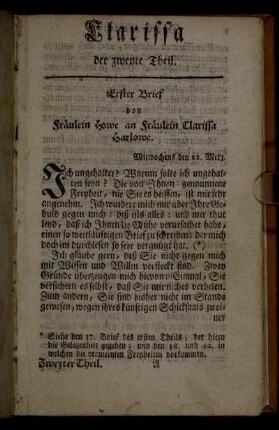 Clarissa
der zweyte Theil.
Erster Brief
von
Fräulein Howe an Fräulein Clarissa
Harlowe.
Mittwochens den 22. Merz.
Ich ungehalten? Warum solte ich ungehal-
ten seyn? Die von Ihnen genommene
Freyheit, wie Sie es heissen, ist mir sehr
angenehm. Ich wundere mich nur über Ihre Ge-
duld gegen mich: diß ists alles: und mir thut
leyd, daß ich Ihnen die Mühe verursachet habe,
einen so weitläuftigen Brief zu schreiben der mich
doch im durchlesen so sehr vergnügt hat. (*)
Ich glaube gern, daß Sie nicht gegen mich
mit Wissen und Willen versteckt sind. Zwey
Gründe überzeugen mich hievon: Einmal, Sie
versichern es selbst, daß Sie mir nichts verhelen.
Zum andern, Sie sind bisher nicht im Stande
gewesen, wegen ihres künftigen Schicksaals zu ei-
ner
* Siehe den 37. Brief des ersten Theils, der hiezu
die Gelegenheit gegeben; und den 38. und 40. in
welchen die vermeinten Freyheiten vorkommen.
Zweyter Theil. A